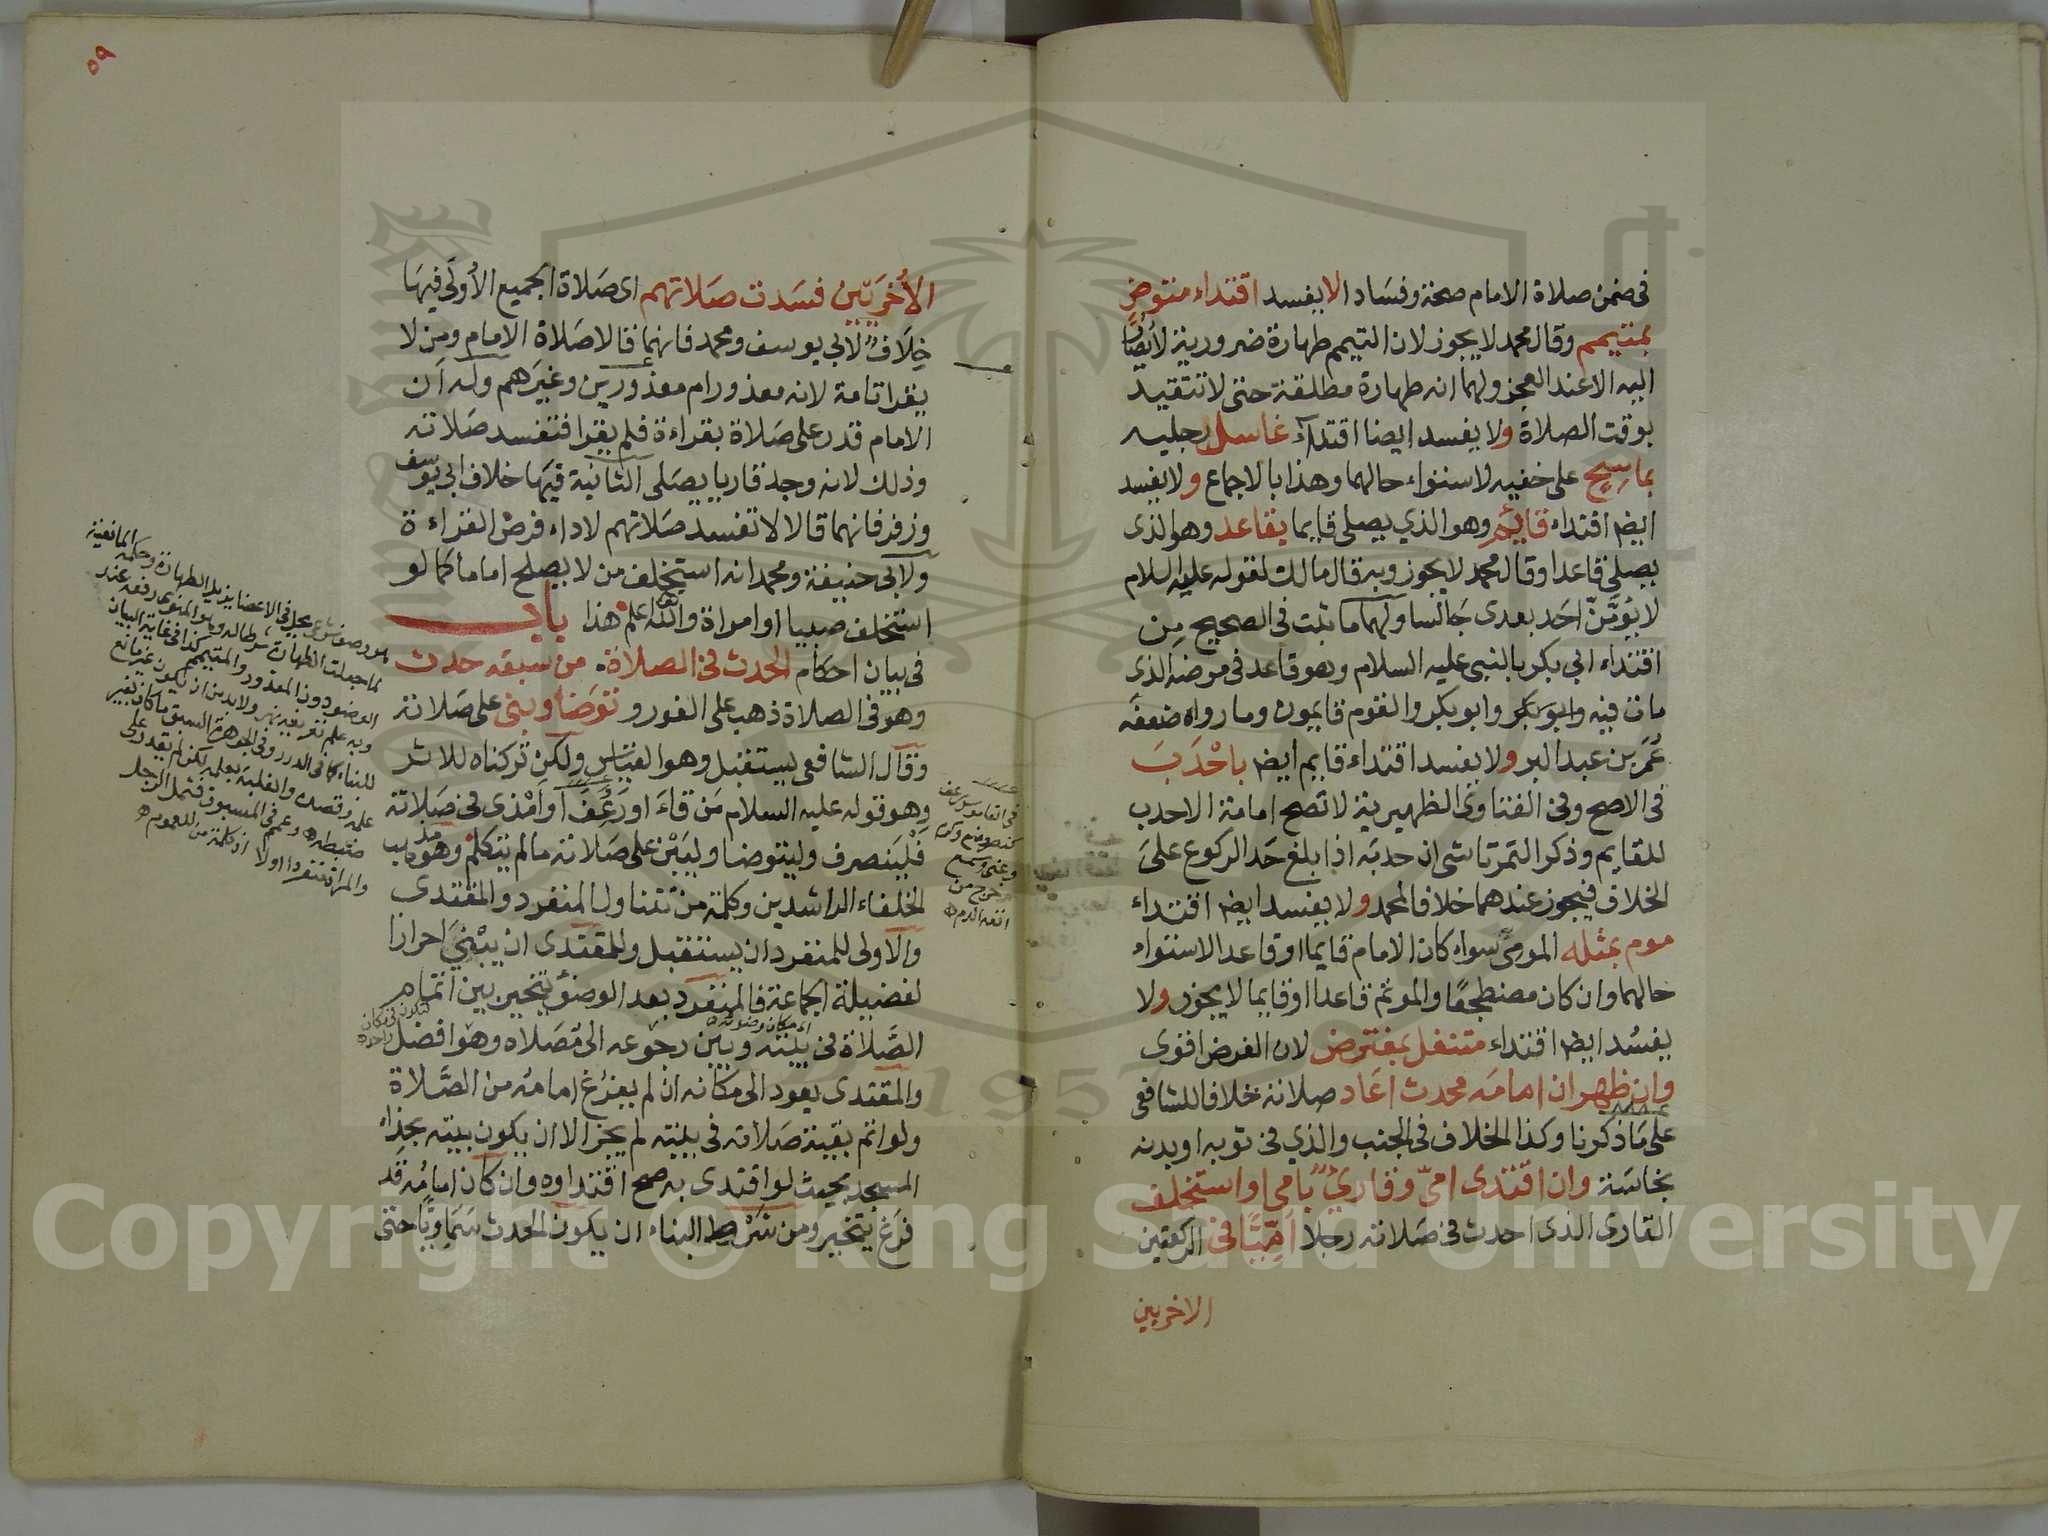 في ضمن صلاة الامام صحة وفسادا لا يفسد اقتداء متوض
بمتيمم وقال محمد لا يجوز لان التيمم طهارة ضرورية لا يصار
اليه الا عند العجز ولهما انه طهارة مطلقة حتى لا تتقيد
بوقت الصلاة ولا يفسد ايضا اقتداء غاسل رجليه
بماسح على خفيه لاستواء حالهما وهذا بالاجماع ولا يفسد
ايضا اقتداء قائم وهو الذي يصلي قايما بقاعد وهو الذى
يصلي قاعدا وقال محمد لا يجوز وبه قال مالك لقوله عليه السلام
لا يؤمن احد بعدى جالسا ولهما ما ثبت في الصحيح من
اقتداء ابي بكر بالنبي عليه السلام وهو قاعد في مرضه الذى
مات فيه وابو بكر والقوم قايمون وما رواه ضعفه
عمر بن عبد البر ولا يفسد اقتداء قايم ايضا باحدب
في الاصح وفي الفتاوى الظهيرية لا تصح امامة الاحدب
للقايم وذكر التمرتاشى ان حدبه اذا بلغ حد الركوع على
الخلاف فيجوز عندهما خلافا لمحمد ولا يفسد ايضا اقتداء
موم بمثله المومئ سواء كان الامام قايما او قاعدا لاستواء
حالهما وان كان مضطجعا والموتم قاعدا او قايما لا يجوز ولا
يفسد ايضا اقتداء متنفل بمفترض لان الفرض اقوى
وان ظهر ان امامه محدث اعاد صلاته خلافا للشافعي
على ما ذكرنا وكذا الخلاف في الجنب والذي في ثوبه او بدنه
نجاسة وان اقتدى امي وقاري بامي او استخلف
القارى الذى احدث في صلاته رجلا اميا في الركعتين
الاخريين
٥٩
الأخريين فسدت صلاتهم اى صلاة الجميع الأولى فيها
خلاف لابي يوسف ومحمد فانهما قالا صلاة الامام ومن لا
يقرا تامة لانه معذور ام معذورين وغيرهم وله ان
الامام قدر على صلاة بقراءة فلم يقرا فتفسد صلاته
وذلك لانه وجد قاريا يصلى الثانية فيها خلاف ابي يوسف
وزفر فانهما قالا لا تفسد صلاتهم لاداء فرض القراءة
ولابى حنيفة ومحمد انه استخلف من لا يصلح اماما كما لو
استخلف صبيا او امراة والله اعلم هذا باب
في بيان احكام الحدث في الصلاة من سبقه حدث
وهو في الصلاة ذهب على الفور و توضا وبنى على صلاته
وقال الشافعى يستقبل وهو القياس ولكن تركناه للاثر
وهو قوله عليه السلام من قاء او رعف او امذى في صلاته
فلينصرف وليتوضا وليبن على صلاته مالم يتكلم وهو مذهب
الخلفاء الراشدين وكلمة من تتناول المنفرد والمقتدى
والاولى للمنفرد ان يستقبل وللمقتدى ان يبني احرازا
لفضيلة الجماعة فالمنفرد بعد الوضوء يتخير بين اتمام
الصلاة في بيته وبين رجوعه الى مصلاه وهو افضل
والمقتدى يعود الى مكانه ان لم يفرغ امامه من الصلاة
ولو اتم بقية صلاته في بيته لم يجز الا ان يكون بيته بحذاء
المسجد بحيث لو اقتدى به صح اقتداوه وان كان امامه قد
فرغ يتخير ومن شرط البناء ان يكون الحدث سماويا حتى
اى مكان وضوئه
في القاموس رعف
كنصر ومنع وكرم
وعنى وسمع
خرج من
انفه الدم